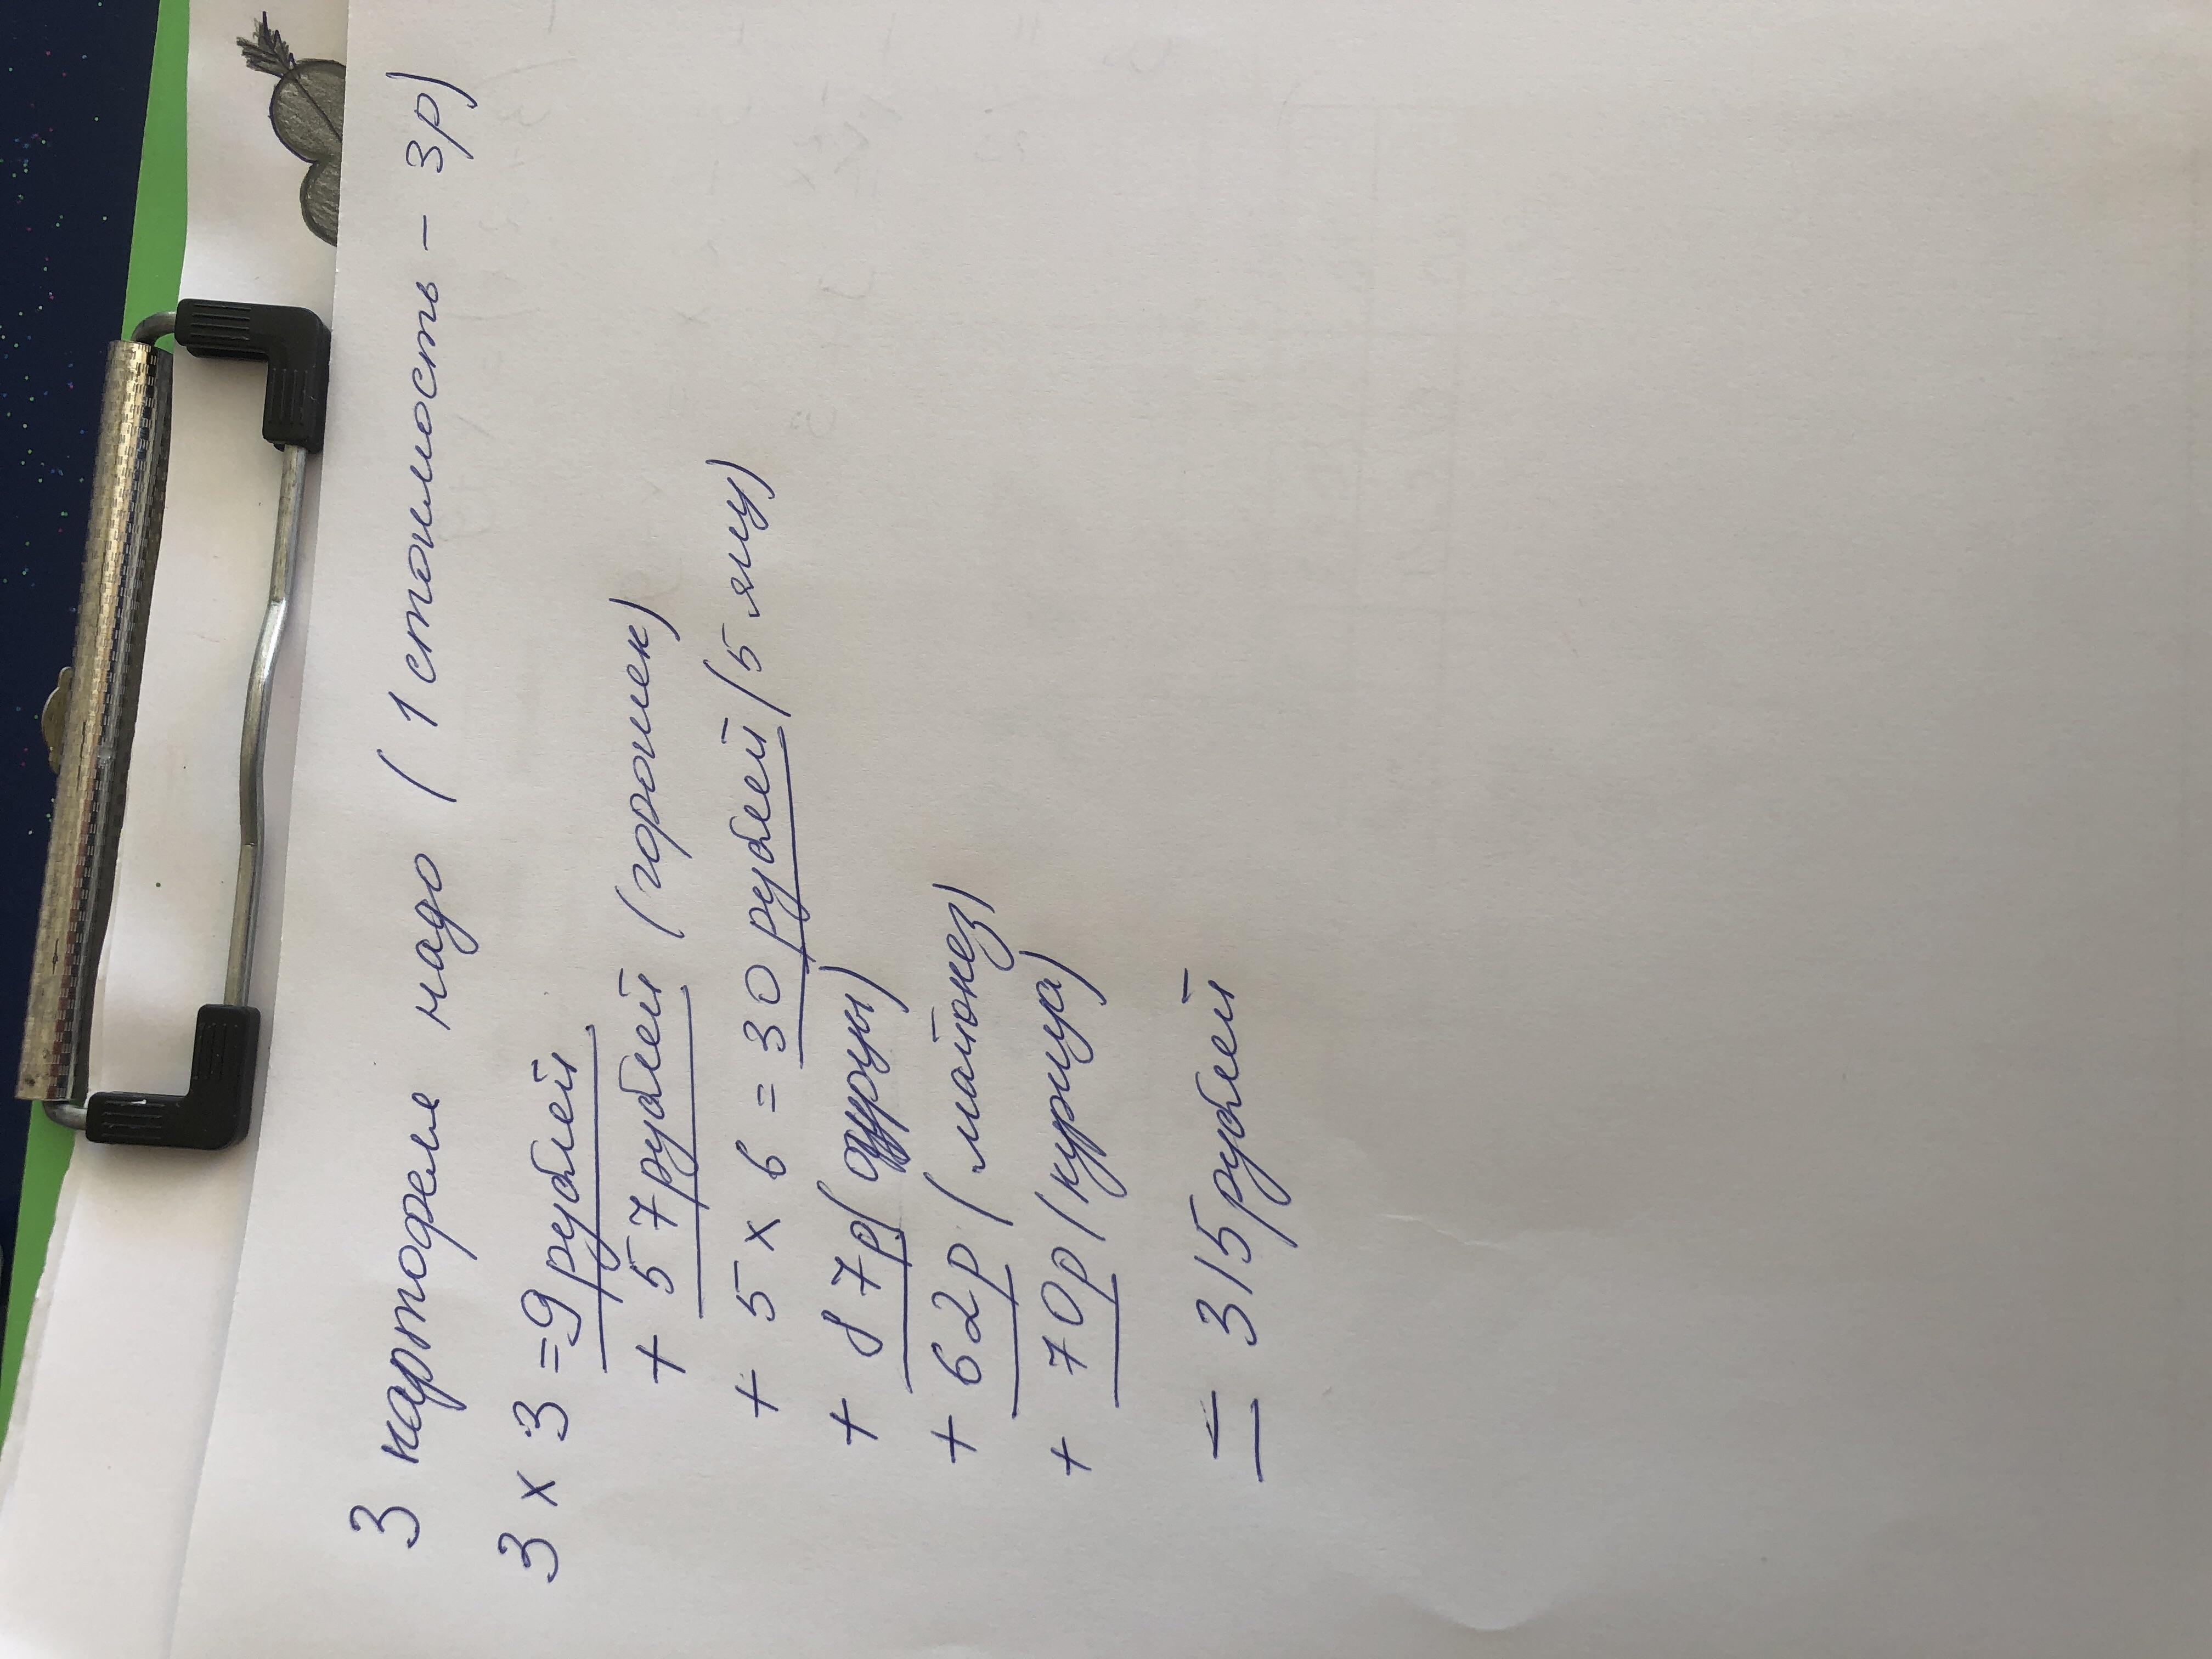 3 картофеля надо (1 стоимость - 3р)
3 х 3 = 9 рублей
+ 57 рублей (горошек)
+ 5 х 6 = 30 рублей (5 яиц)
+ 87р (огурцы)
+ 62р (майонез)
+ 70р (курица)
= 315 рублей